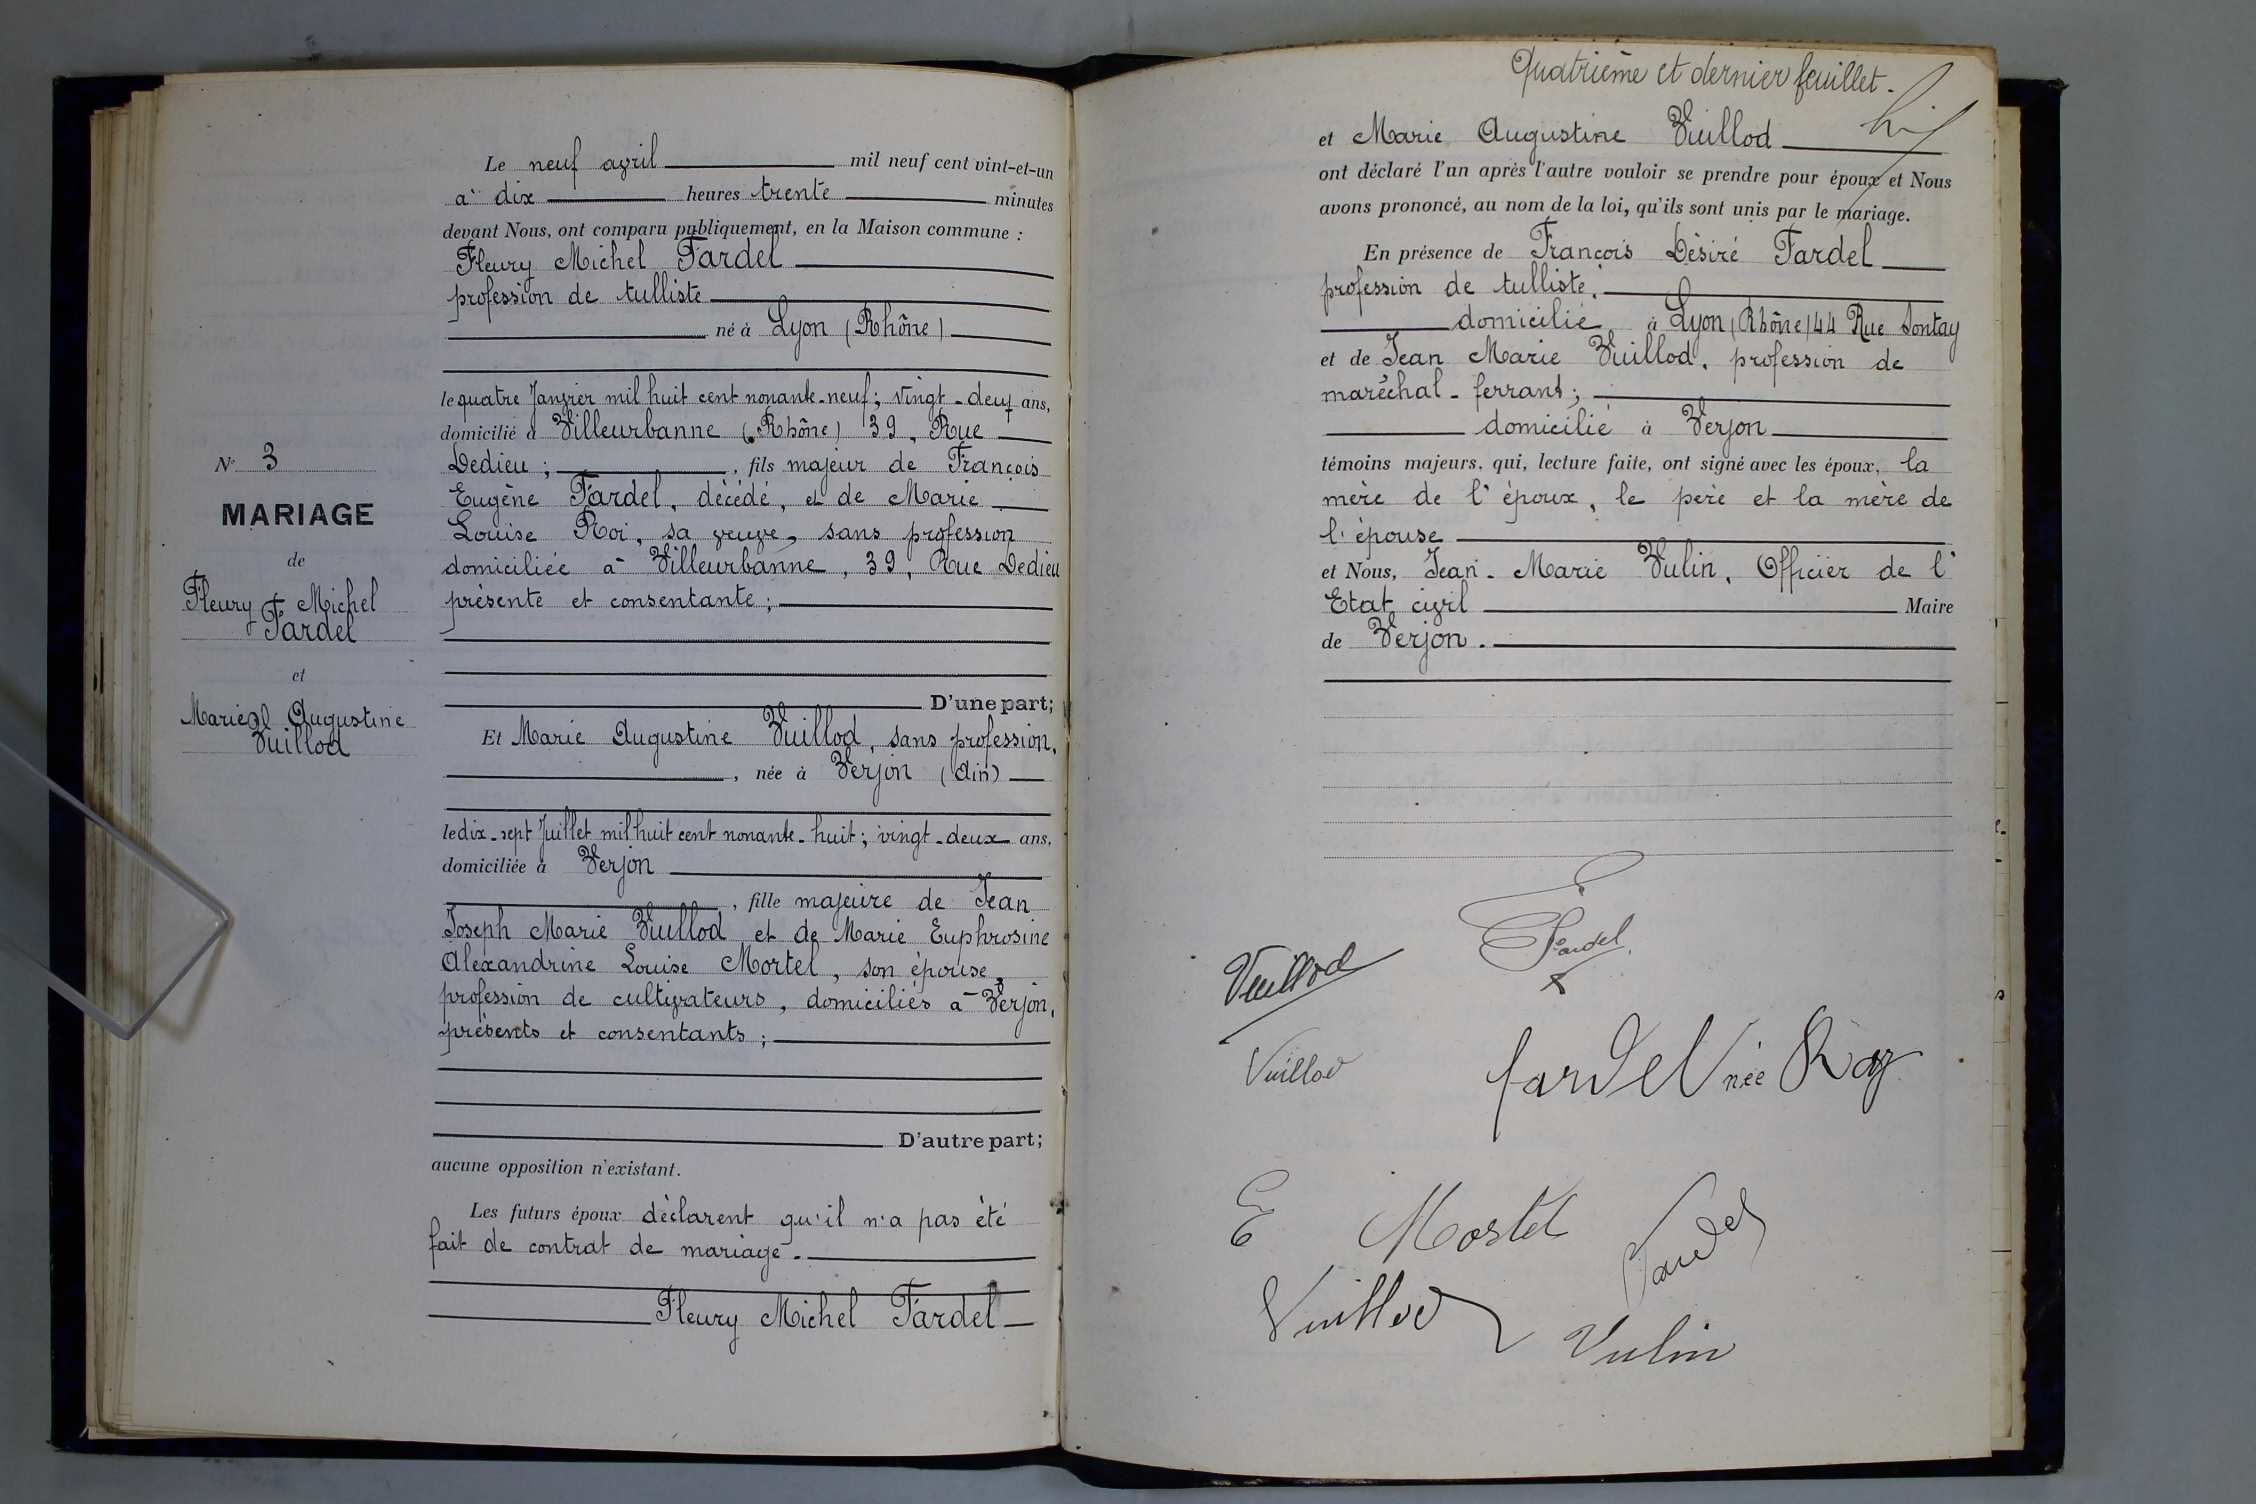 N° 3
MARIAGE
de
Fleury - Michel
Fardel
et
Marie Augustine
Vuillod
Le neuf avril mil neuf cent vint-et-un
à dix heures trente minutes
devant Nous, ont comparu publiquement, en la Maison commune :
Fleury Michel Fardel
profession de tulliste
né à Lyon (Rhône)
le quatre Janvier mil huit cent nonante-neuf ; vingt-deux ans,
domicilié à Villeurbanne (Rhône) 39, Rue
Dedieu ; , fils majeur de François
Eugène Fardel, décédé, et de Marie
Louise Roi, sa veuve, sans profession
domiciliée à Villeurbanne, 39, Rue Dedieu
présente et consentante ;
D'une part;
Et Marie Augustine Vuillod, sans profession,
, née à Verjon (Ain)
le dix-sept Juillet mil huit cent nonante-huit ; vingt-deux ans,
domiciliée à Verjon
, fille majeure de Jean
Joseph Marie Vuillod et de Marie Euphrosine
Alexandrine Louise Mortel, son épouse,
profession de cultivateurs, domiciliés à Verjon,
présents et consentants ;
D'autre part;
aucune opposition n'existant.
Les futurs époux déclarent qu'il n'a pas été
fait de contrat de mariage.
Fleury Michel Fardel
Quatrième et dernier feuillet.
et Marie Augustine Vuillod
ont déclaré l'un après l'autre vouloir se prendre pour époux et Nous
avons prononcé, au nom de la loi, qu'ils sont unis par le mariage.
En présence de François Désiré Fardel
profession de tulliste.
domicilié à Lyon (Rhône) 44 Rue Tontay
et de Jean Marie Vuillod, profession de
maréchal-ferrant ;
domicilié à Verjon
témoins majeurs, qui, lecture faite, ont signé avec les époux, la
mère de l'époux, le père et la mère de
l'épouse
et Nous, Jean-Marie Vulin, Officier de l'
Etat civil Maire
de Verjon.
Fardel
Vuillod
Vuillod
fardel née Roy
E Mortel
Fardel
Vuillod
Vulin